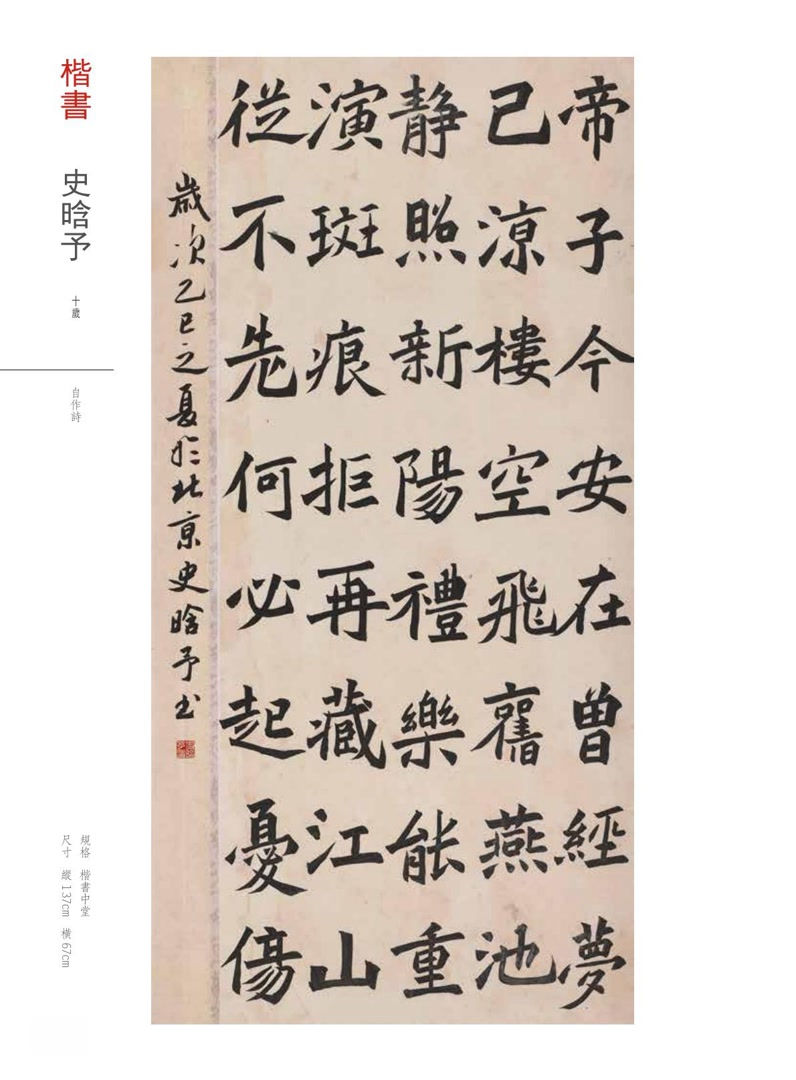 楷書
史晗予
十歲
自作詩
規格 楷書中堂
尺寸 縱137cm 橫67cm
帝子今安在曾經夢
已涼樓空飛舊燕池
静照新陽禮樂能重
演斑痕拒再藏江山
從不老何必起憂傷
歲次乙巳之夏於北京史晗予书